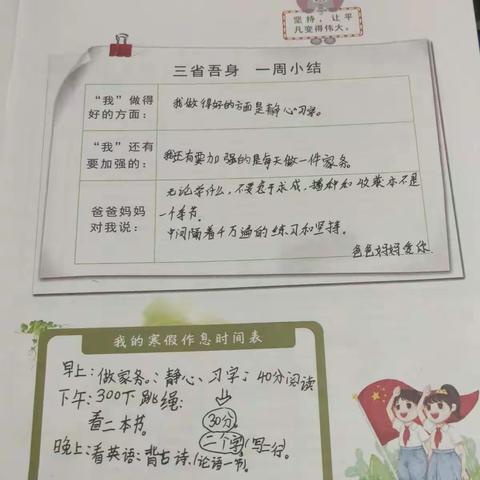 坚持，让平
凡变得伟大。
三省吾身 一周小结
“我”做得
好的方面：
我做得好的方面是静心习字。
“我”还有
要加强的：
我还有要加强的是每天做一件家务。
爸爸妈妈
对我说：
无论学什么，不要急于求成，播种和收获本不是
一个季节。
中间隔着千万遍的练习和坚持。
爸爸妈妈爱你
我的寒假作息时间表
早上：做家务。；静心、习字；40分阅读
下午：300下跳绳；
30分。
看二本书。
二个字
晚上：看英语；背古诗、论语一节。